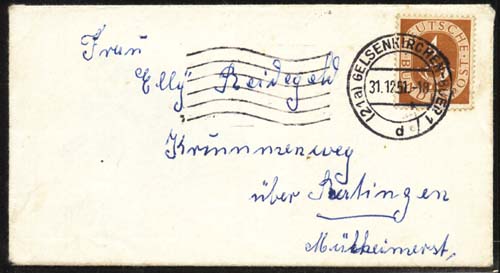 Frau
"Elly" Reidegeld
Krummenweg
über Ratingen
Mülheimerst.
DEUTSCHE POST
4
(21a) GELSENKIRCHEN-BUER 1
31.12.51.-18
d